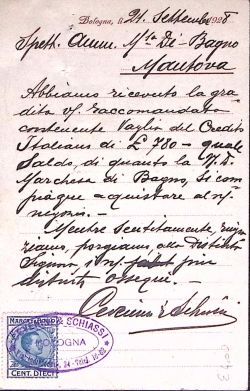 Bologna, li 21 Settembre 1928
Spett. Amm. M.se Di Bagno
Mantova
Abbiamo ricevuto la gra-
dita Vs. raccomandata
contenente Vaglia del Credito
Italiano di £ 980 - quale
Saldo, di quanto la N.D.
Marchesa di Bagno, si com-
piacque acquistare al ns/
negozio.
Mentre sentitamente, ringra-
ziamo, porgiamo, alla Distinta
Signora i ns/ più
distinti ossequi.
& SCHIASSI
BOLOGNA
MARCA DA BOLLO
CENT. DIECI